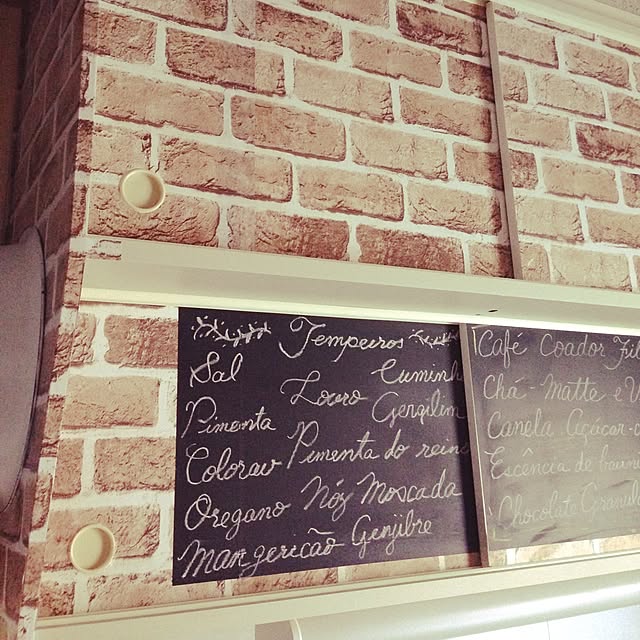 Tempeiros
Sal Louro Cuminh
Pimenta Gergilim
Colorau Pimenta do rein
Oregano Nóz Moscada
Mangericão Genjibre
Café Coador Fil
Chá - Matte e V
Canela Açúcar-c
Escência de baun
Chocolate Granul